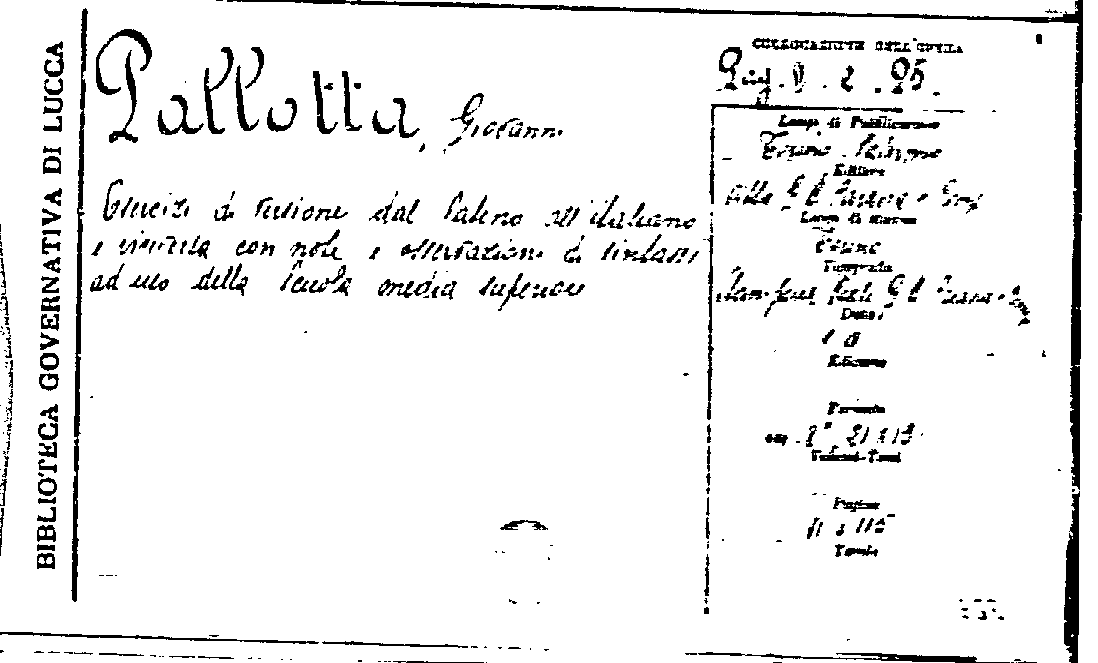 BIBLIOTECA GOVERNATIVA DI LUCCA
Pallotta, Giovanni
Esercizi di versione dal latino all'italiano
e viceversa con note e osservazioni di sintassi
ad uso della scuola media superiore
COLLOCAZIONE DELL'OPERA
2 . 95.
Luogo di Pubblicazione
Torino
Editore
Ditta G B Paravia e Comp
Luogo di stampa
Torino
Tipografia
G B Paravia
Data
Edizione
Formato
8° 21x13
Volumi-Tomi
Pagine
Tavole